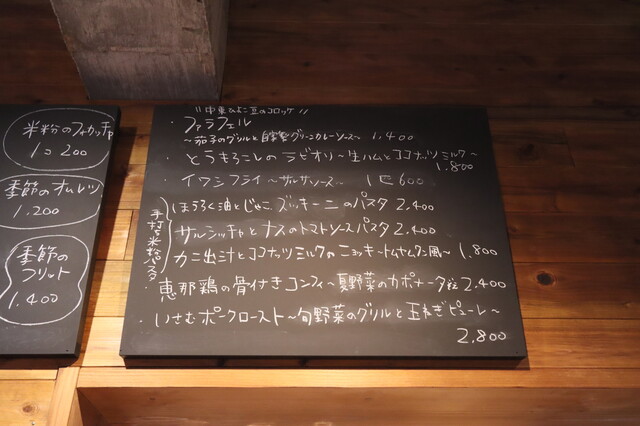 米粉のフォカッチャ
1コ 200
季節のオムレツ
1.200
季節の
フリット
1.400
〃中東ひよこ豆のコロッケ〃
・ファラフェル
〜茄子のグリルと自家製グリーンカレーソース〜 1.400
・とうもろこしのラビオリ〜生ハムとココナッツミルク〜
1.800
・イワシフライ〜サルサソース〜 1匹 600
手打ち米粉パスタ
ほうろく油とじゃこ ズッキーニのパスタ 2.400
サルシッチャとナスのトマトソースパスタ 2.400
カニ出汁とココナッツミルクのニョッキ〜トムヤムクン風〜 1.800
恵那鶏の骨付きコンフィ〜夏野菜のカポナータ 2.400
・いさむポークロースト〜旬野菜のグリルと玉ねぎピューレ〜
2.800